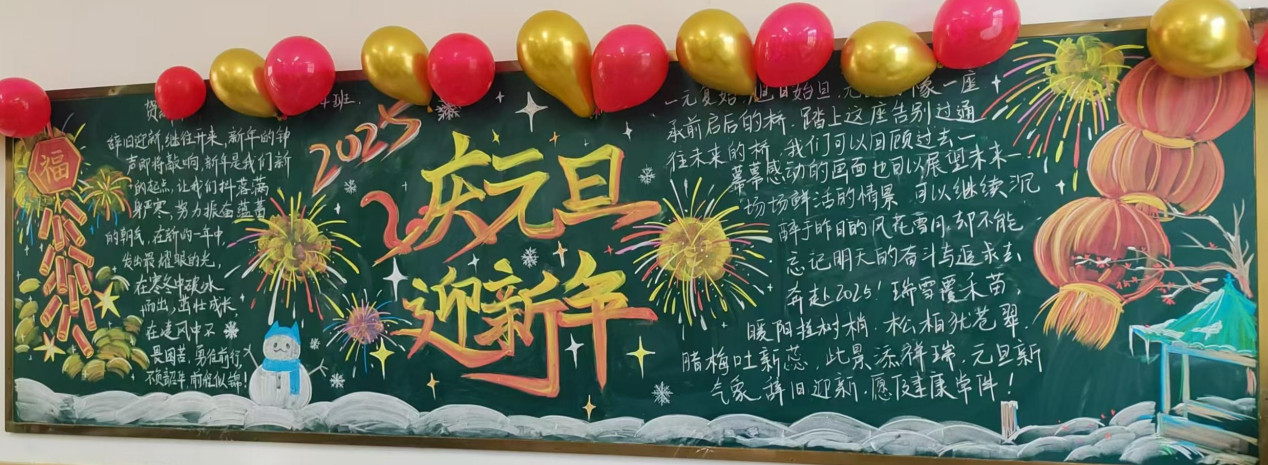 福
班.
辞旧迎新,继往开来,新年的钟
声即将敲响,新年是我们新
的起点,让我们抖落满
身严寒,努力振奋蓝蓄
的朝气,在新的一年中,
发出最耀眼的光,
在寒冬中破冰
而出,茁壮成长,
在逆风中不
畏困苦,勇往前行,
不负韶华,前程似锦!
2025
庆元旦
迎新年
一元复始,旭日始旦,元 像一座
承前启后的桥.踏上这座告别过通
往未来的桥,我们可以回顾过去一
幕幕感动的画面也可以展望未来一
场场鲜活的情景,可以继续沉
醉于昨日的风花雪月,却不能
忘记明天的奋斗与追求去
奔赴2025!瑞雪覆禾苗,
暖阳挂树梢.松柏犹苍翠.
腊梅吐新蕊,此景添祥瑞.元旦新
气象,辞旧迎新.愿 健康常伴!